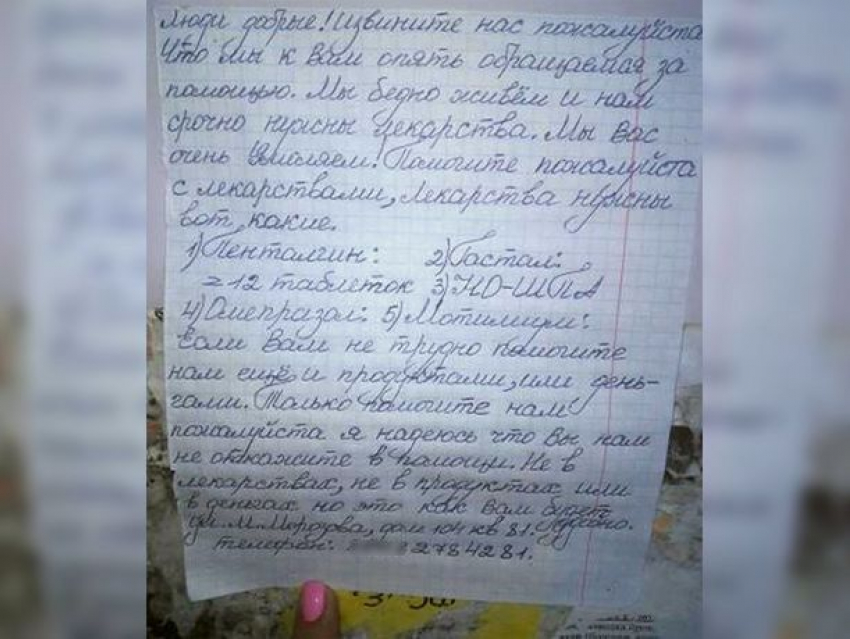 Люди добрые! Извините нас пожалуйста
Что мы к Вам опять обращаемся за
помощью. Мы бедно живём и нам
срочно нужны лекарства. Мы Вас
очень Умоляем! Помогите пожалуйста
с лекарствами, Лекарства нужны
вот, какие.
1) Пенталгин: 2) Гастал:
= 12 таблеток 3) НО-ШПА
4) Омепразол: 5) Мотилиум:
Если Вам не трудно помогите
нам ещё и продуктами, или день-
гами. Только помогите нам
пожалуйста я надеюсь что Вы нам
не откажите в помощи. Не в
лекарствах, не в продуктах или
в деньгах но это как Вам будет
ул. М. Морозова, дом 104 кв 81. Удобно.
телефон: 2784281.